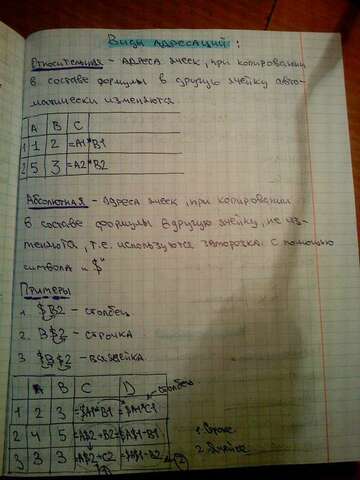 Виды адресаций:
Относительная - адреса ячеек, при копировании
в составе формулы в другую ячейку авто-
матически изменяются
A B C
1 1 2 =A1*B1
2 5 3 =A2*B2
Абсолютная - адреса ячеек, при копировании
в составе формулы в другую ячейку, не из-
меняются, т.е. используются заморозка с помощью
символа „$"
Примеры
1. $B2 - столбец
2. B$2 - строчка
3 $B$2 - вся ячейка
A B C D столбец
1 2 3 =$A1*B1 =$A1*C1
2 4 5 =A$2+B2
3 3 3
1
2